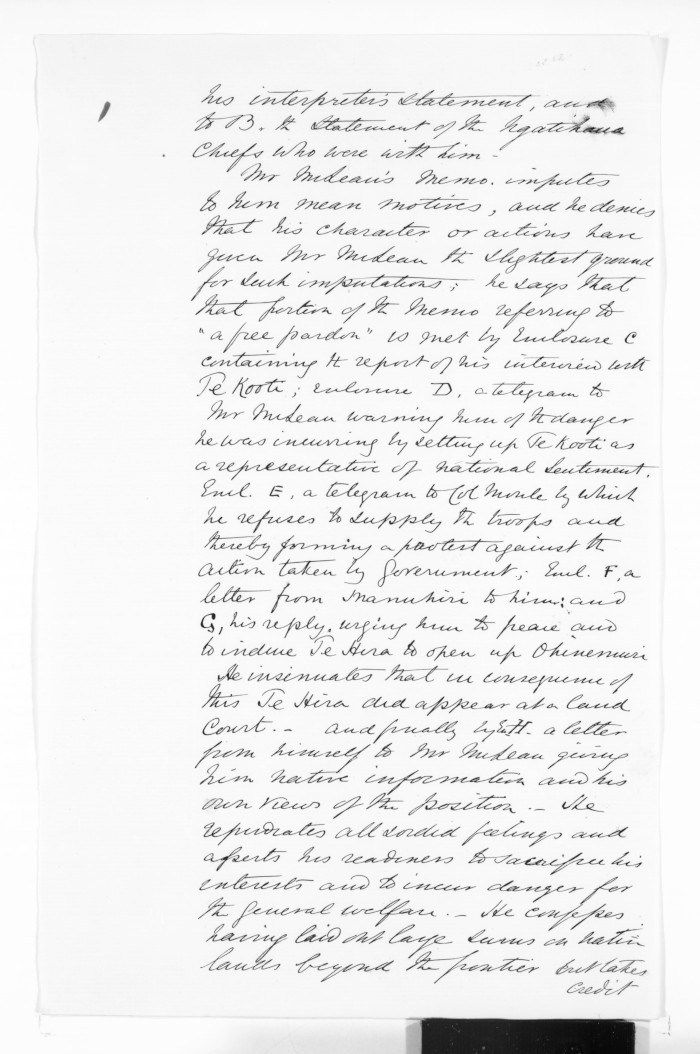 his interpreter's statement, and
to B. th statement of the Ngatihaua
Chiefs who were with him -
Mr McLean's Memo. imputes
to him mean motives, and he denies
that his character or actions have
given Mr McLean th slightest ground
for such imputations; he says that
that portion of th Memo referring to
"a free pardon" is met by Enclosure C
containing th report of his interview with
Te Kooti; enclosure D, a telegram to
Mr McLean warning him of th danger
he was incurring by setting up Te Kooti as
a representative of national sentiment.
Encl. E, a telegram to Col Moule by which
he refuses to supply th troops and
thereby forming a protest against th
action taken by Government; Encl. F, a
letter from Manuhiri to him; and
G, his reply, urging him to peace and
to induce Te Hira to open up Ohinemuri
He insinuates that in consequence of
this Te Hira did appear at a land
Court. - and finally by Encl H. a letter
from himself to Mr McLean giving
him native information and his
own views of the position. - He
repudiates all sordid feelings and
asserts his readiness to sacrifice his
interests and to incur danger for
th general welfare. - He confesses
having laid out large sums on native
lands beyond the frontier but takes
credit